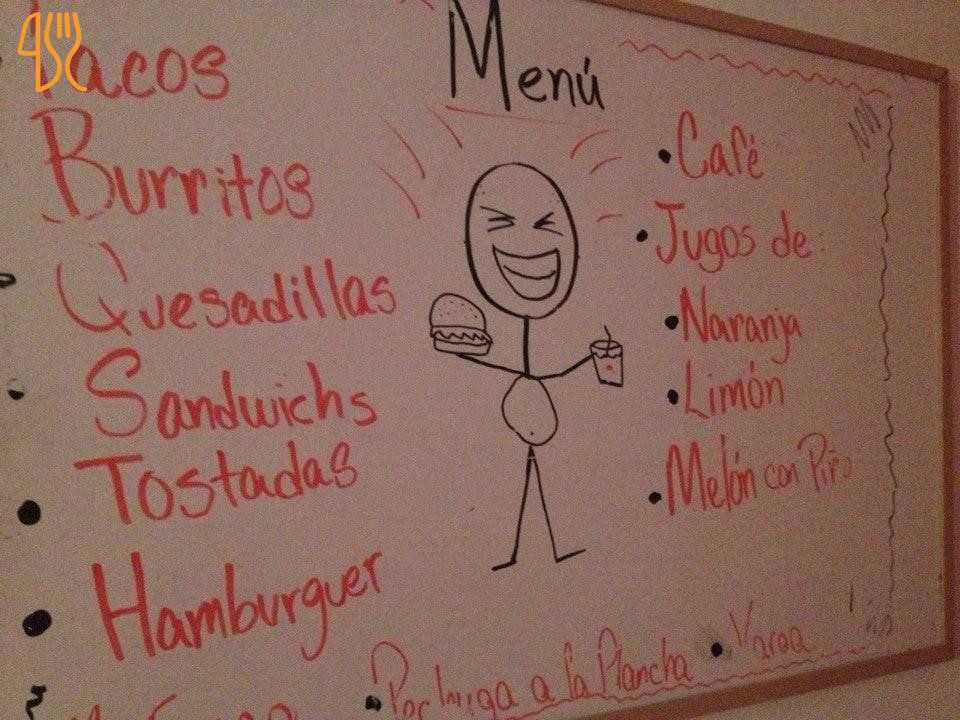 Menú
Tacos
Burritos
Quesadillas
Sandwichs
Tostadas
Hamburguer
• Café
• Jugos de
• Naranja
• Limón
• Melón con Piña
a la Plancha